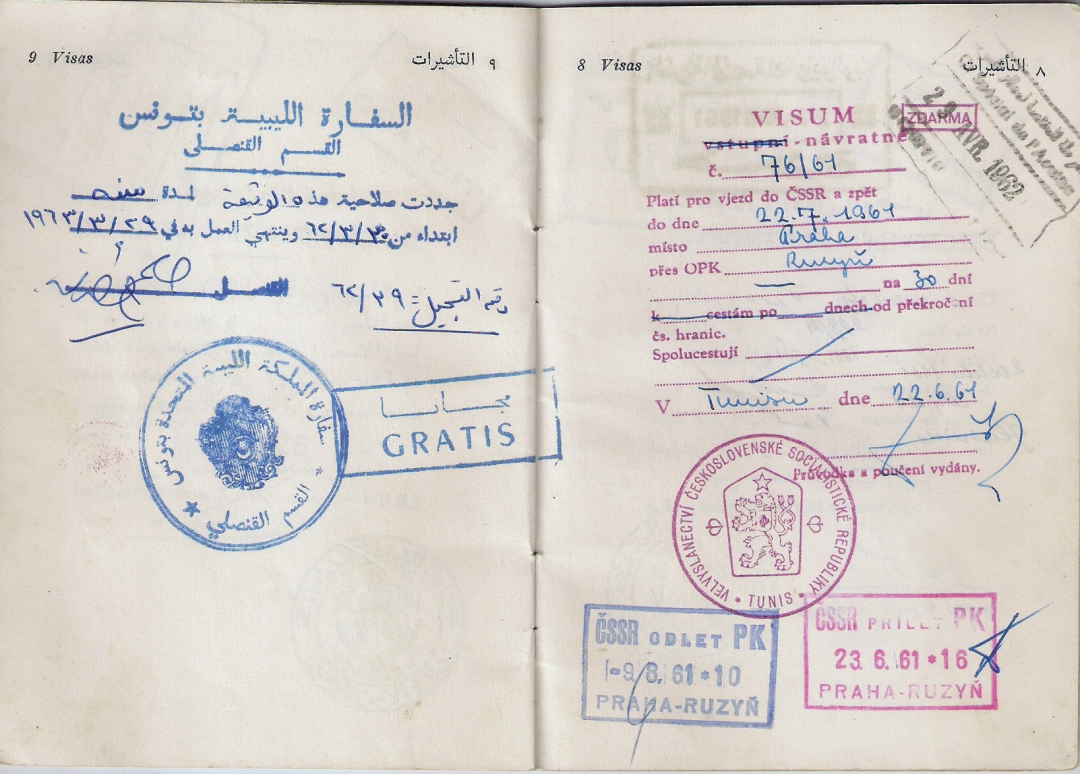 9 Visas
التأشيرات ٩
السفارة الليبية بتونس
القسم القنصلى
جددت صلاحية هذه الوثيقة لمدة سنه
ابتداء من ٦٢/٣/٣٠ وينتهي العمل به في ١٩٦٣/٣/٢٩
القنصل
رقم التسجيل = ٦٢/٣٩
سفارة المملكة الليبية المتحدة بتونس
القسم القنصلي
مجانا
GRATIS
8 Visas
التأشيرات ٨
29 AVR. 1962
VISUM
ZDARMA
vstupní-návratné
č. 76/61
Platí pro vjezd do ČSSR a zpět
do dne 22.7.1961
místo Praha
přes OPK Ruzyň
— na 30 dní
k cestám po dnech od překročení
čs. hranic.
Spolucestují
V Tunisu dne 22.6.61
Průvodka a poučení vydány.
VELVYSLANECTVÍ ČESKOSLOVENSKÉ SOCIALISTICKÉ REPUBLIKY
* TUNIS *
ČSSR ODLET PK
-9.8.61*10
PRAHA-RUZYŇ
ČSSR PŘÍLET PK
23.6.61*16
PRAHA-RUZYŇ